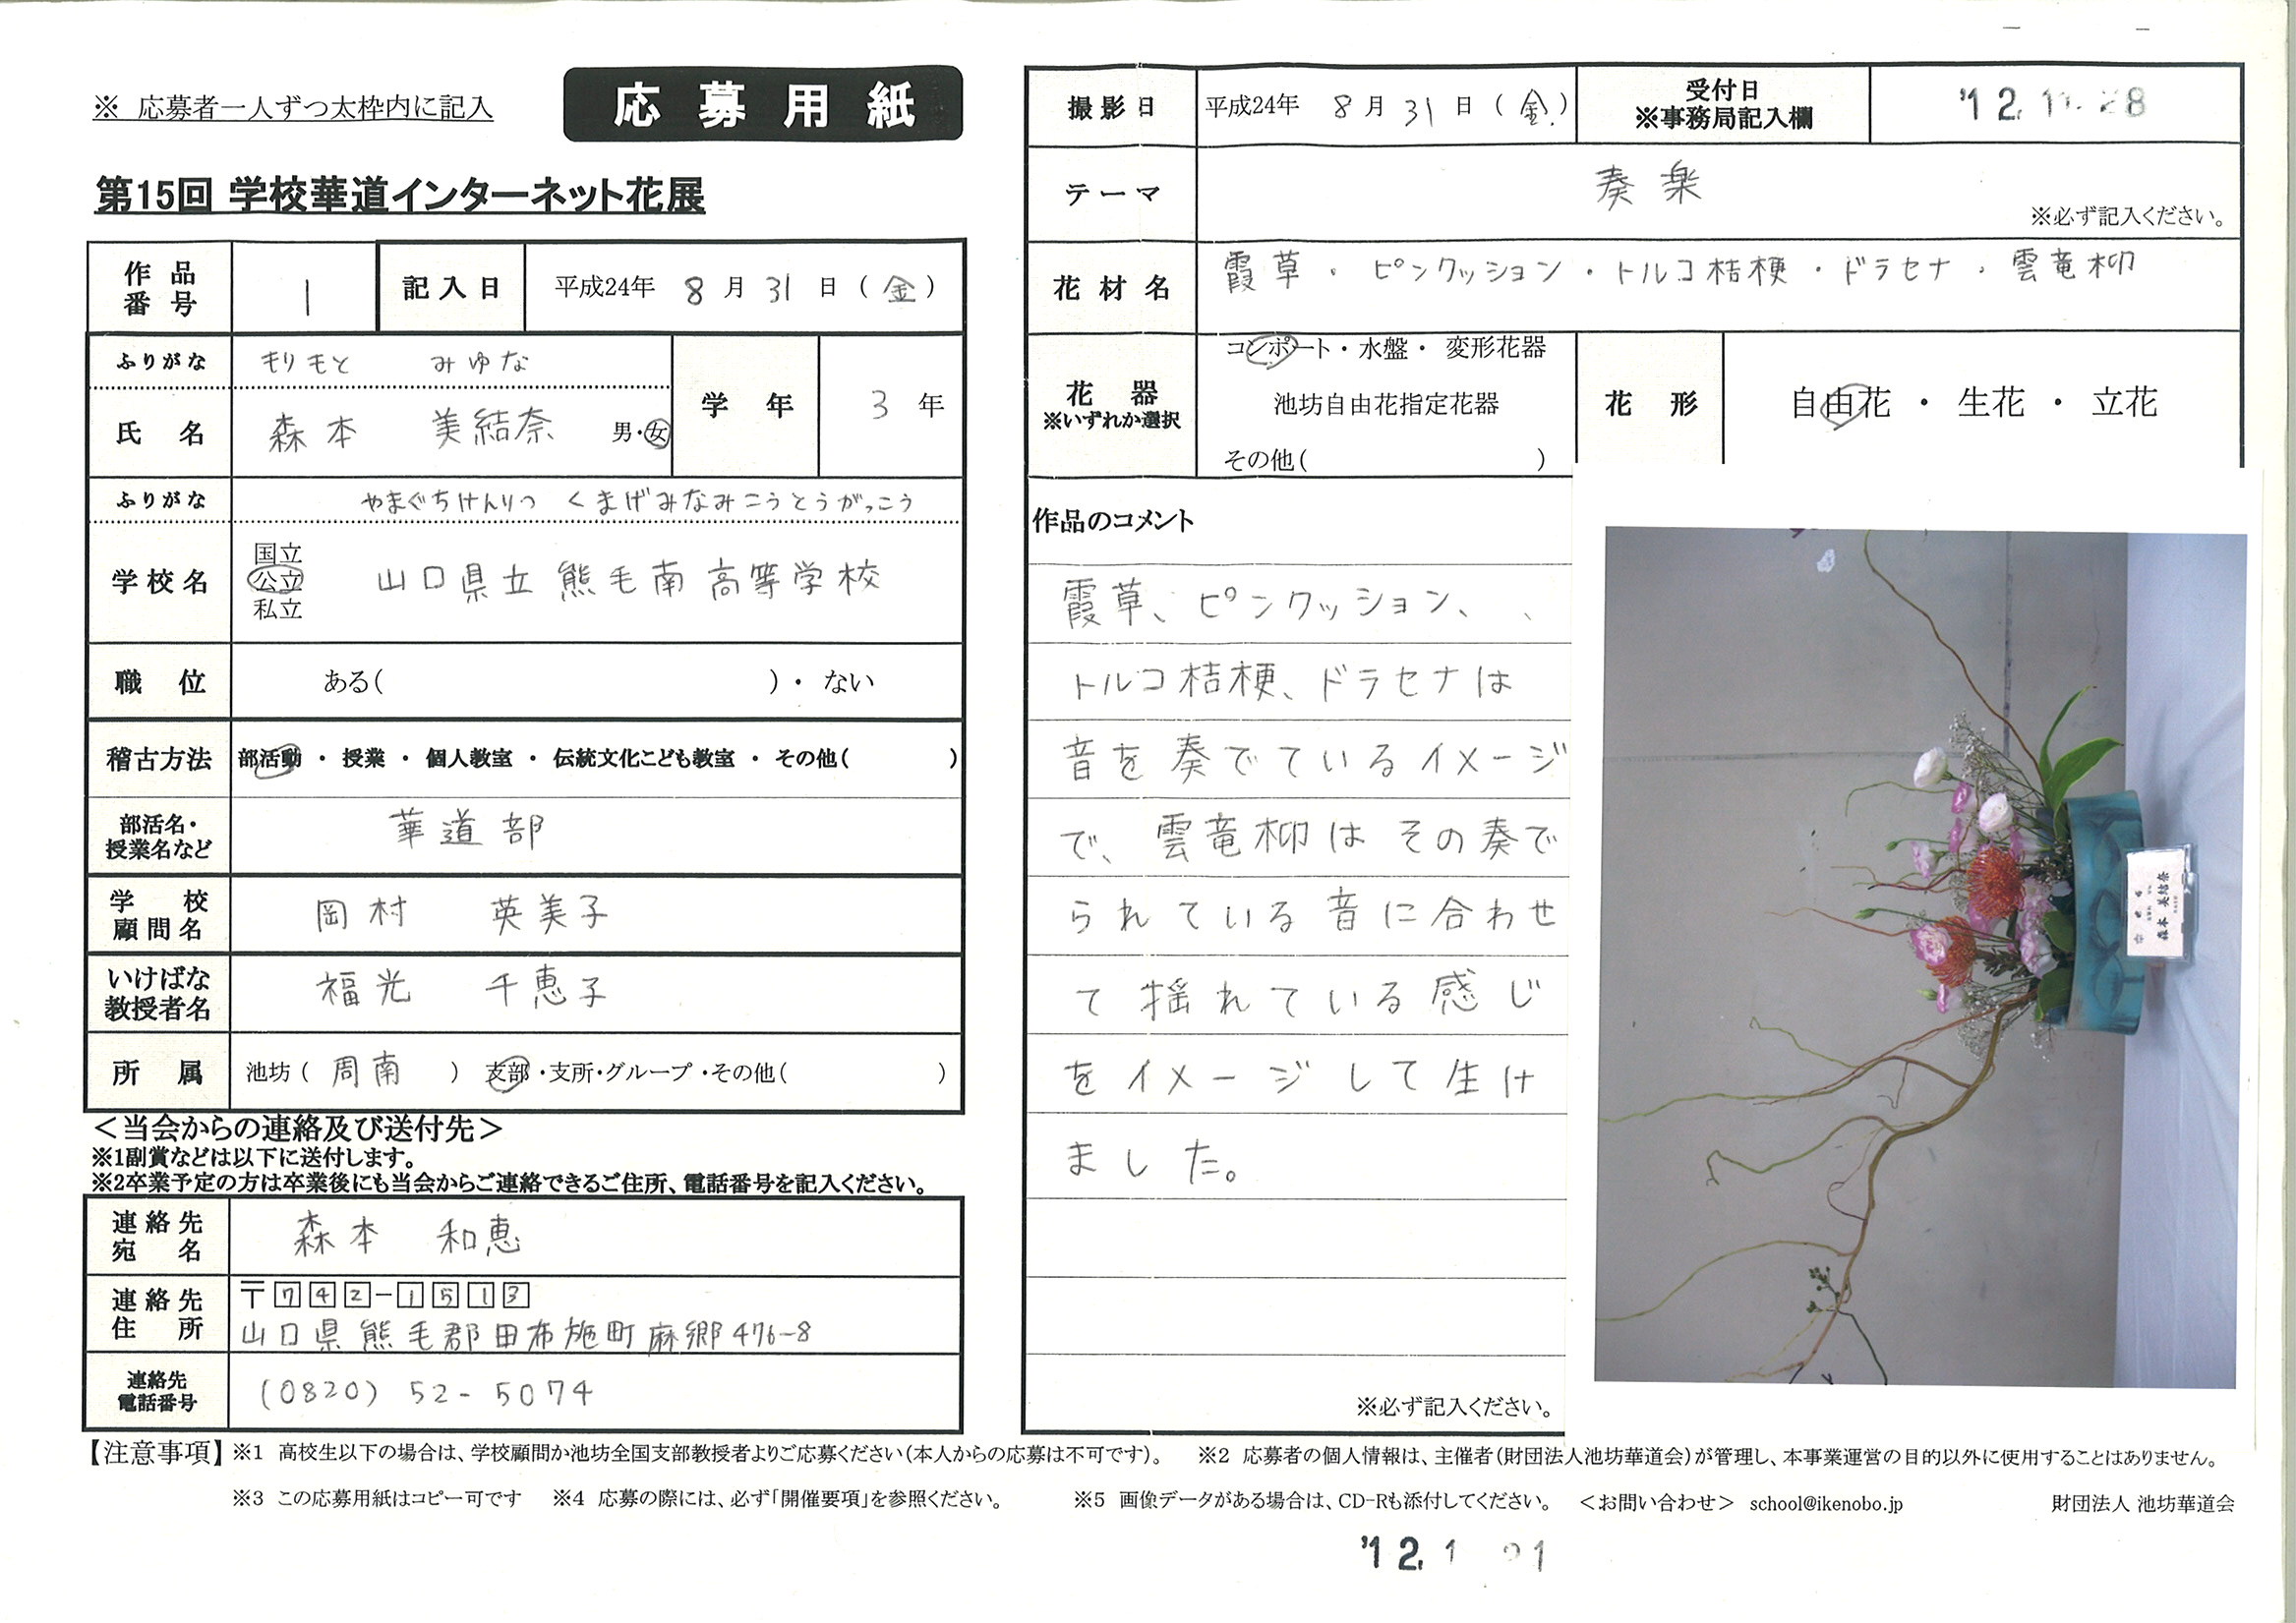 ※ 応募者一人ずつ太枠内に記入
応募用紙
第15回 学校華道インターネット花展
作品番号 1 記入日 平成24年 8月31日(金)
ふりがな もりもと みゆな
氏名 森本 美結奈 男・女
学年 3年
ふりがな やまぐちけんりつ くまげみなみこうとうがっこう
学校名 国立 公立 私立 山口県立熊毛南高等学校
職位 ある( )・ない
稽古方法 部活動・授業・個人教室・伝統文化こども教室・その他( )
部活名・授業名など 華道部
学校顧問名 岡村 英美子
いけばな教授者名 福光 千恵子
所属 池坊(周南)支部・支所・グループ・その他( )
<当会からの連絡及び送付先>
※1副賞などは以下に送付します。
※2卒業予定の方は卒業後にも当会からご連絡できるご住所、電話番号を記入ください。
連絡先宛名 森本 和恵
連絡先住所 〒742-1513
山口県熊毛郡田布施町麻郷476-8
連絡先電話番号 (0820)52-5074
撮影日 平成24年 8月31日(金)
受付日 ※事務局記入欄 '12.
テーマ 奏楽
※必ず記入ください。
花材名 霞草・ピンクッション・トルコ桔梗・ドラセナ・雲竜柳
花器 ※いずれか選択
コンポート・水盤・変形花器
池坊自由花指定花器
その他( )
花形 自由花・生花・立花
作品のコメント
霞草、ピンクッション、、
トルコ桔梗、ドラセナは
音を奏でているイメージ
で、雲竜柳はその奏で
られている音に合わせ
て揺れている感じ
をイメージして生け
ました。
※必ず記入ください。
森本 美結奈
【注意事項】※1 高校生以下の場合は、学校顧問か池坊全国支部教授者よりご応募ください(本人からの応募は不可です)。 ※2 応募者の個人情報は、主催者(財団法人池坊華道会)が管理し、本事業運営の目的以外に使用することはありません。
※3 この応募用紙はコピー可です ※4 応募の際には、必ず「開催要項」を参照ください。 ※5 画像データがある場合は、CD-Rも添付してください。 <お問い合わせ> school@ikenobo.jp 財団法人 池坊華道会
'12.